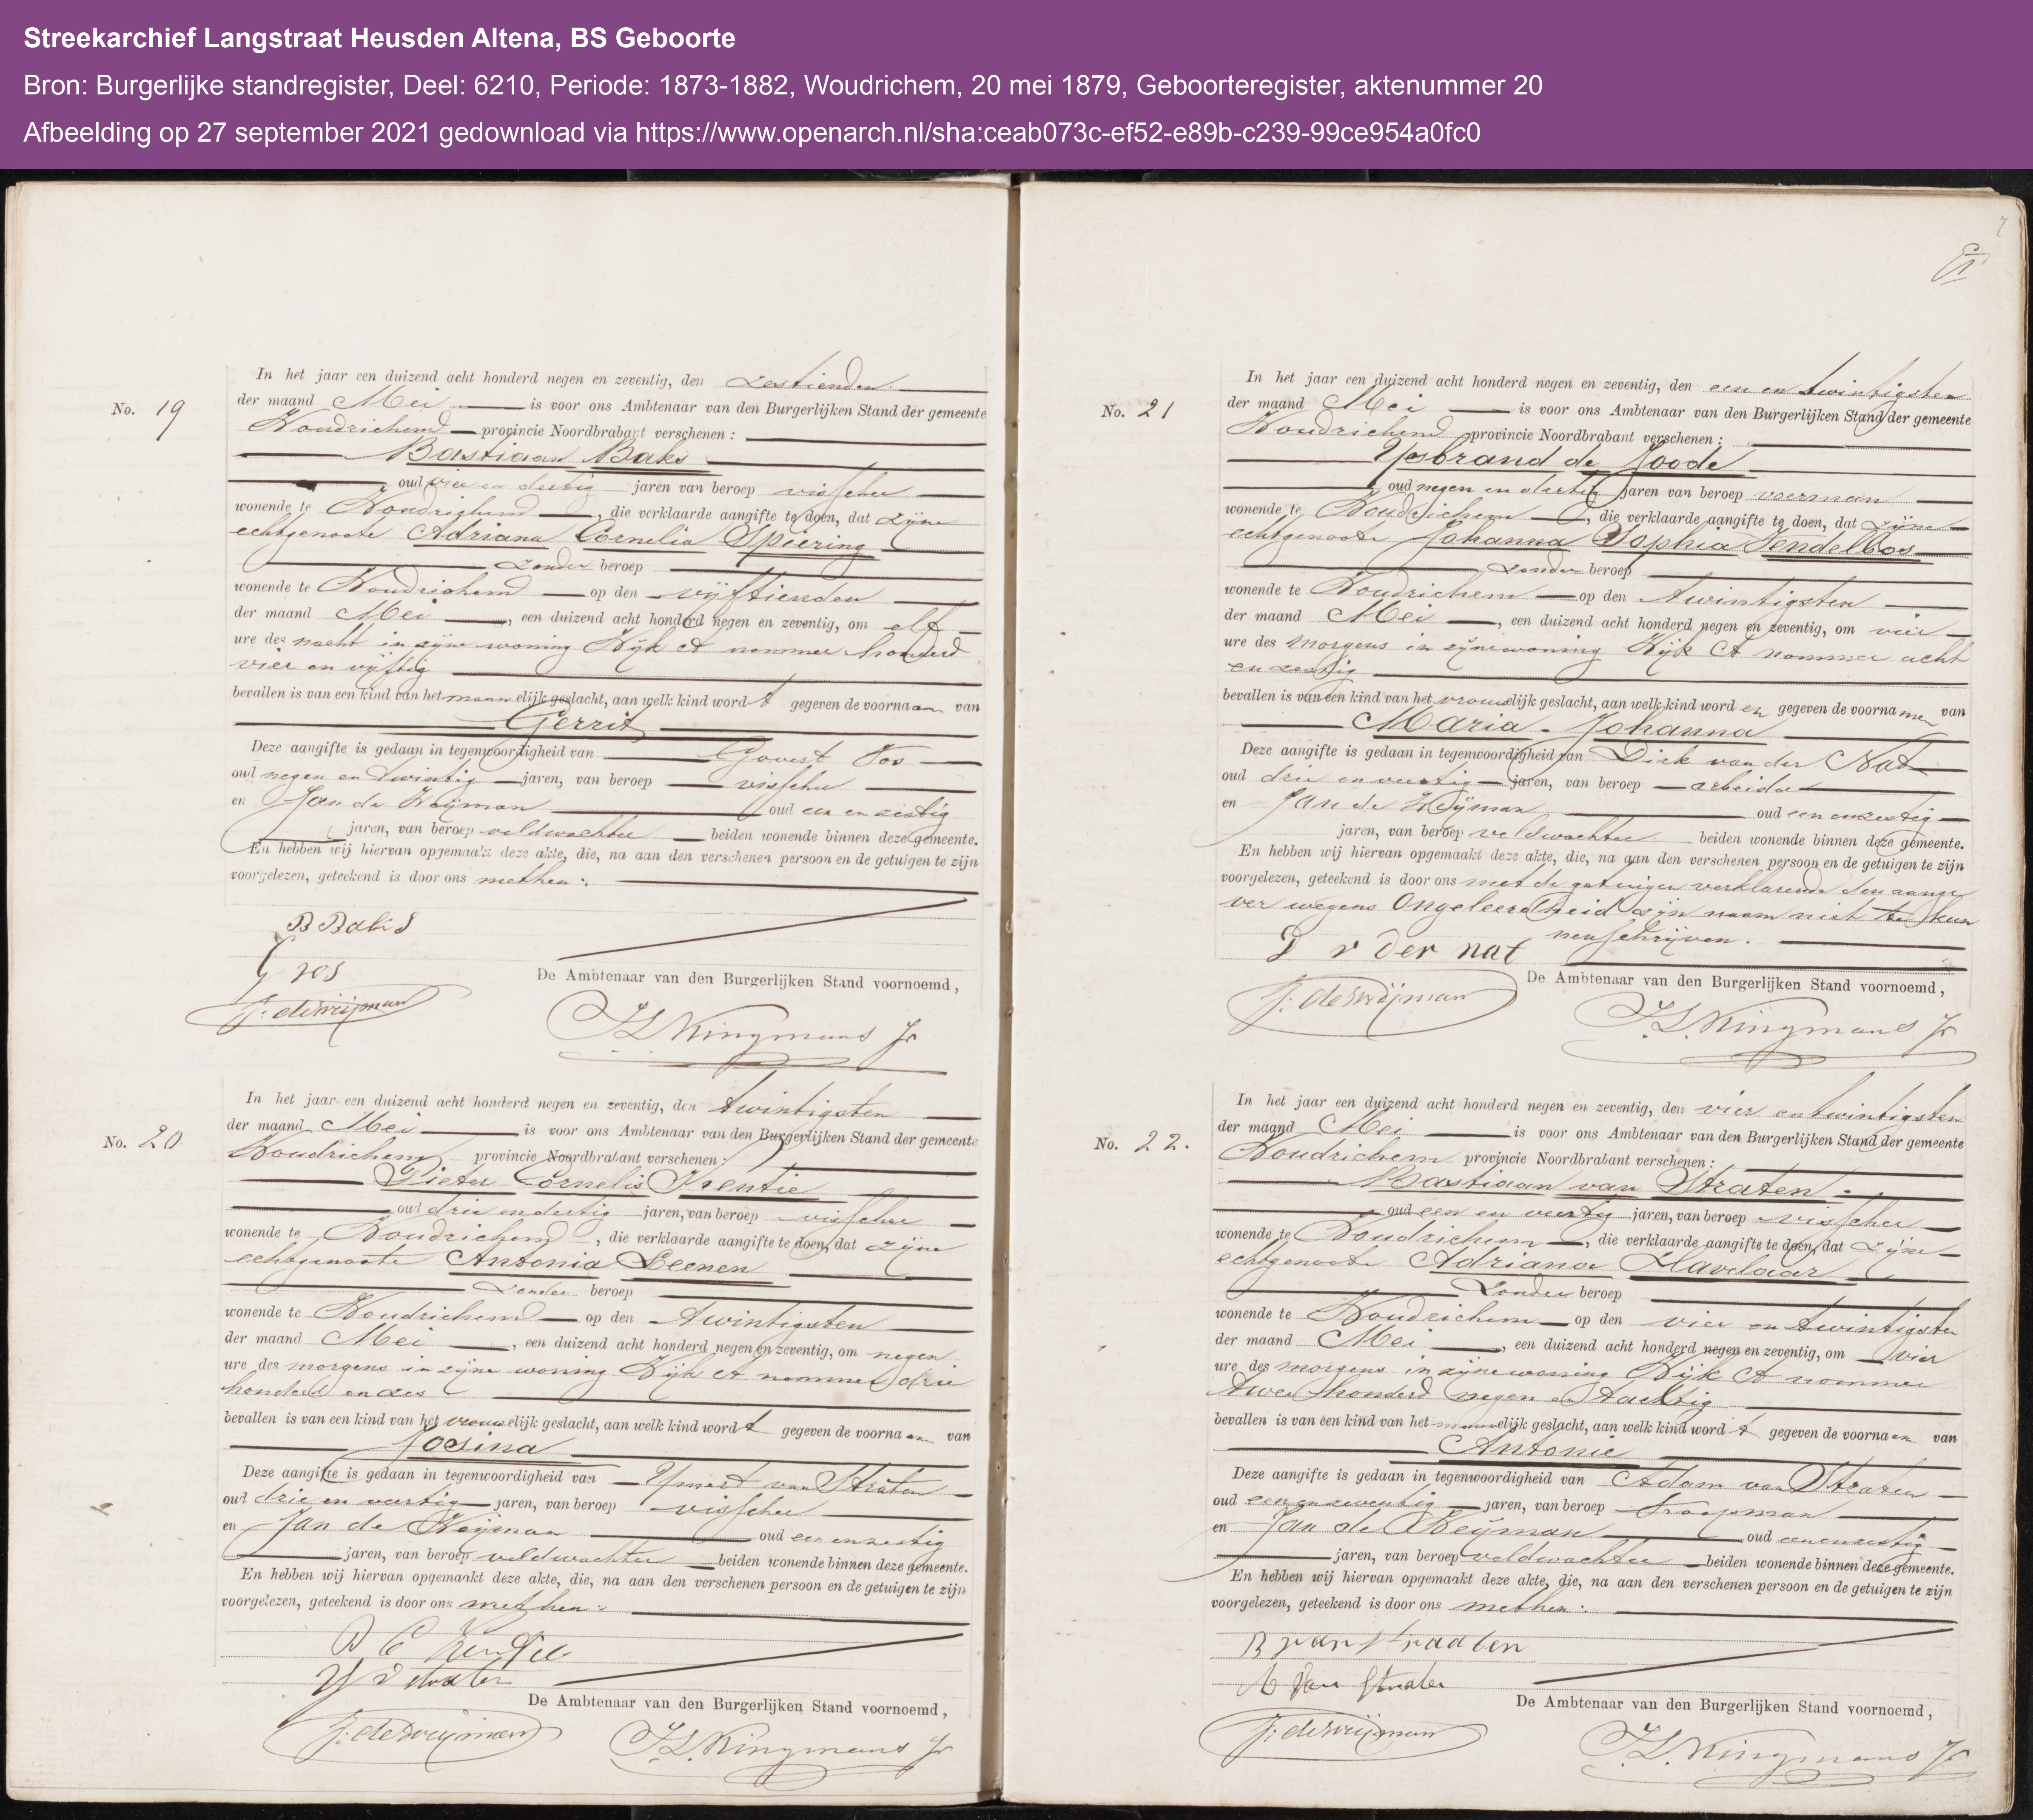 Streekarchief Langstraat Heusden Altena, BS Geboorte
Bron: Burgerlijke standregister, Deel: 6210, Periode: 1873-1882, Woudrichem, 20 mei 1879, Geboorteregister, aktenummer 20
Afbeelding op 27 september 2021 gedownload via https://www.openarch.nl/sha:ceab073c-ef52-e89b-c239-99ce954a0fc0
No. 19
In het jaar een duizend acht honderd negen en zeventig, den zestienden
der maand Mei is voor ons Ambtenaar van den Burgerlijken Stand der gemeente
Woudrichem provincie Noordbrabant verschenen:
Bastiaan Baks
oud vier en dertig jaren van beroep visscher
wonende te Woudrichem, die verklaarde aangifte te doen, dat zijne
echtgenoote Adriana Cornelia Spiering
zonder beroep
wonende te Woudrichem op den vijftienden
der maand Mei, een duizend acht honderd negen en zeventig, om elf
ure des nacht in zijne woning Wijk A nommer honderd
vier en vijftig
bevallen is van een kind van het mannelijk geslacht, aan welk kind wordt gegeven de voornaam van
Gerrit
Deze aangifte is gedaan in tegenwoordigheid van Govert Vos
oud negen en twintig jaren, van beroep visscher
en Jan de Weijman oud een en zestig
jaren, van beroep veldwachter beiden wonende binnen deze gemeente.
En hebben wij hiervan opgemaakt deze akte, die, na aan den verschenen persoon en de getuigen te zijn
voorgelezen, geteekend is door ons met hen.
B Baks
G vos
De Ambtenaar van den Burgerlijken Stand voornoemd,
J. de Weijman
Kingmans Jr
No. 20
In het jaar een duizend acht honderd negen en zeventig, den twintigsten
der maand Mei is voor ons Ambtenaar van den Burgerlijken Stand der gemeente
Woudrichem provincie Noordbrabant verschenen:
Pieter Cornelis Krentie
oud drie en dertig jaren, van beroep visscher
wonende te Woudrichem, die verklaarde aangifte te doen, dat zijne
echtgenoote Antonia Leenen
zonder beroep
wonende te Woudrichem op den twintigsten
der maand Mei, een duizend acht honderd negen en zeventig, om negen
ure des morgens in zijne woning Wijk A nommer drie
honderd en zes
bevallen is van een kind van het vrouwelijk geslacht, aan welk kind wordt gegeven de voornaam van
Josina
Deze aangifte is gedaan in tegenwoordigheid van van Straten
oud drie en veertig jaren, van beroep visscher
en Jan de Weijman oud een en zestig
jaren, van beroep veldwachter beiden wonende binnen deze gemeente.
En hebben wij hiervan opgemaakt deze akte, die, na aan den verschenen persoon en de getuigen te zijn
voorgelezen, geteekend is door ons met hen.
De Ambtenaar van den Burgerlijken Stand voornoemd,
J. de Weijman
Kingmans Jr
No. 21
In het jaar een duizend acht honderd negen en zeventig, den een en twintigsten
der maand Mei is voor ons Ambtenaar van den Burgerlijken Stand der gemeente
Woudrichem provincie Noordbrabant verschenen:
Ysbrand de Joode
oud negen en dertig jaren van beroep voerman
wonende te Woudrichem, die verklaarde aangifte te doen, dat zijne
echtgenoote Johanna Sophia Vendelbos
zonder beroep
wonende te Woudrichem op den twintigsten
der maand Mei, een duizend acht honderd negen en zeventig, om vier
ure des morgens in zijne woning Wijk A nommer acht
en zestig
bevallen is van een kind van het vrouwelijk geslacht, aan welk kind worden gegeven de voornamen van
Maria Johanna
Deze aangifte is gedaan in tegenwoordigheid van Dirk van der Nat
oud drie en veertig jaren, van beroep arbeider
en Jan de Weijman oud een en zestig
jaren, van beroep veldwachter beiden wonende binnen deze gemeente.
En hebben wij hiervan opgemaakt deze akte, die, na aan den verschenen persoon en de getuigen te zijn
voorgelezen, geteekend is door ons met de getuigen verklarende den aange
ver wegens Ongeleerdheid zijn naam niet te kun
nen schrijven.
D v der nat
De Ambtenaar van den Burgerlijken Stand voornoemd,
J. de Weijman
Kingmans Jr
No. 22.
In het jaar een duizend acht honderd negen en zeventig, den vier en twintigsten
der maand Mei is voor ons Ambtenaar van den Burgerlijken Stand der gemeente
Woudrichem provincie Noordbrabant verschenen:
Bastiaan van Straten
oud een en veertig jaren, van beroep visscher
wonende te Woudrichem, die verklaarde aangifte te doen, dat zijne
echtgenoote Adriana Havelaar
zonder beroep
wonende te Woudrichem op den vier en twintigsten
der maand Mei, een duizend acht honderd negen en zeventig, om vier
ure des morgens in zijne woning Wijk A nommer
twee honderd negen en tachtig
bevallen is van een kind van het mannelijk geslacht, aan welk kind wordt gegeven de voornaam van
Antonie
Deze aangifte is gedaan in tegenwoordigheid van Adam van Straten
oud een en zeventig jaren, van beroep koopman
en Jan de Weijman oud een en zestig
jaren, van beroep veldwachter beiden wonende binnen deze gemeente.
En hebben wij hiervan opgemaakt deze akte, die, na aan den verschenen persoon en de getuigen te zijn
voorgelezen, geteekend is door ons met hen.
B van Straaten
A van Straten
De Ambtenaar van den Burgerlijken Stand voornoemd,
J. de Weijman
Kingmans Jr